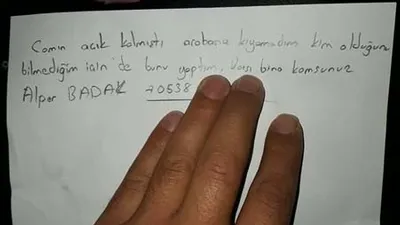 Camın açık kalmıştı arabana kıyamadım kim olduğunu
bilmediğim için de bunu yaptım, karşı bina komşunuz
Alper BADAK 0538